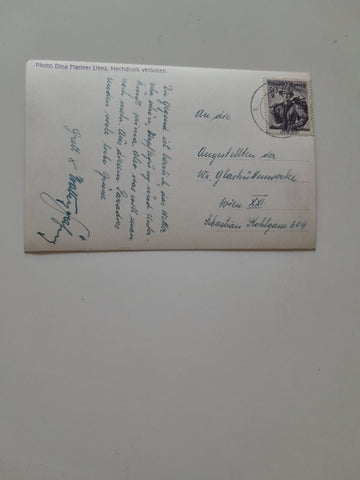 Photo Dina Mariner Lienz. Nachdruck verboten.
Die Gegend ist herrlich, das Wetter
schön, Verpflegung und Unter-
kunft prima. Also was will man
noch mehr. Aus diesem Paradies
senden viele liebe Grüsse
Gretl &
An die
Angestellten der
Wr. Glashüttenwerke
Wien XXI
Sebastian Kohlgasse 6-9